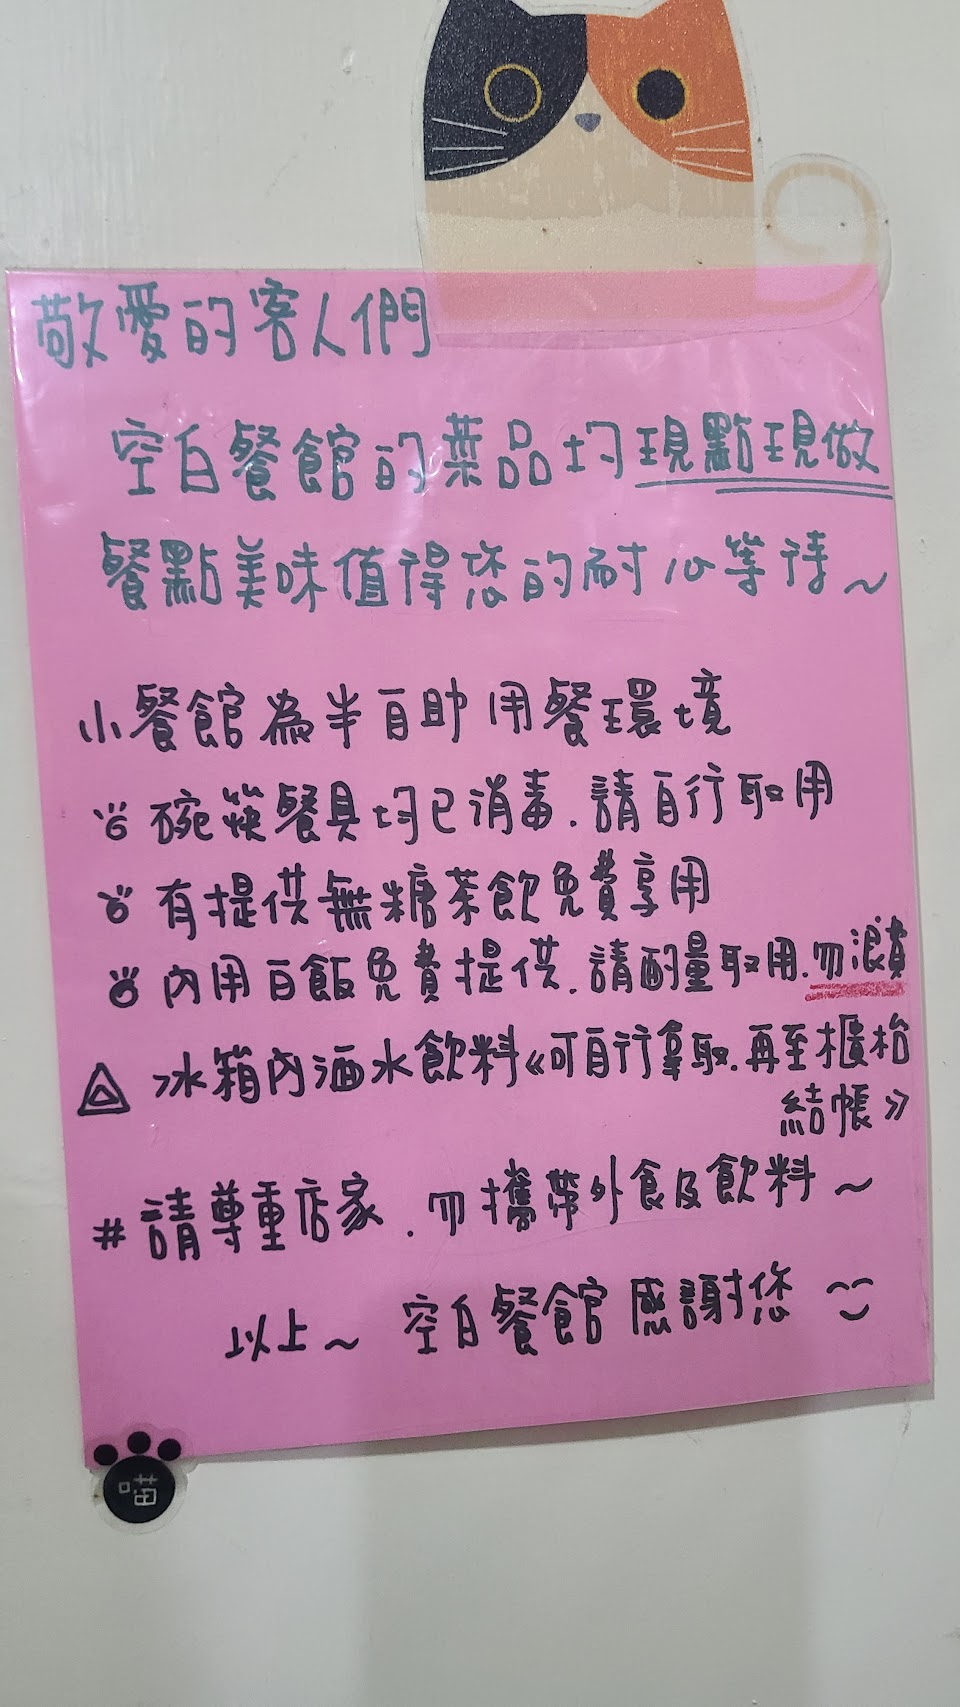 敬愛的客人們
空白餐館的菜品均現點現做
餐點美味值得您的耐心等待~
小餐館為半自助用餐環境
碗筷餐具均已消毒.請自行取用
有提供無糖茶飲免費享用
內用白飯免費提供.請酌量取用.勿浪費
冰箱內酒水飲料《可自行拿取.再至櫃枱
結帳》
#請尊重店家.勿攜帶外食及飲料~
以上~ 空白餐館感謝您
喵